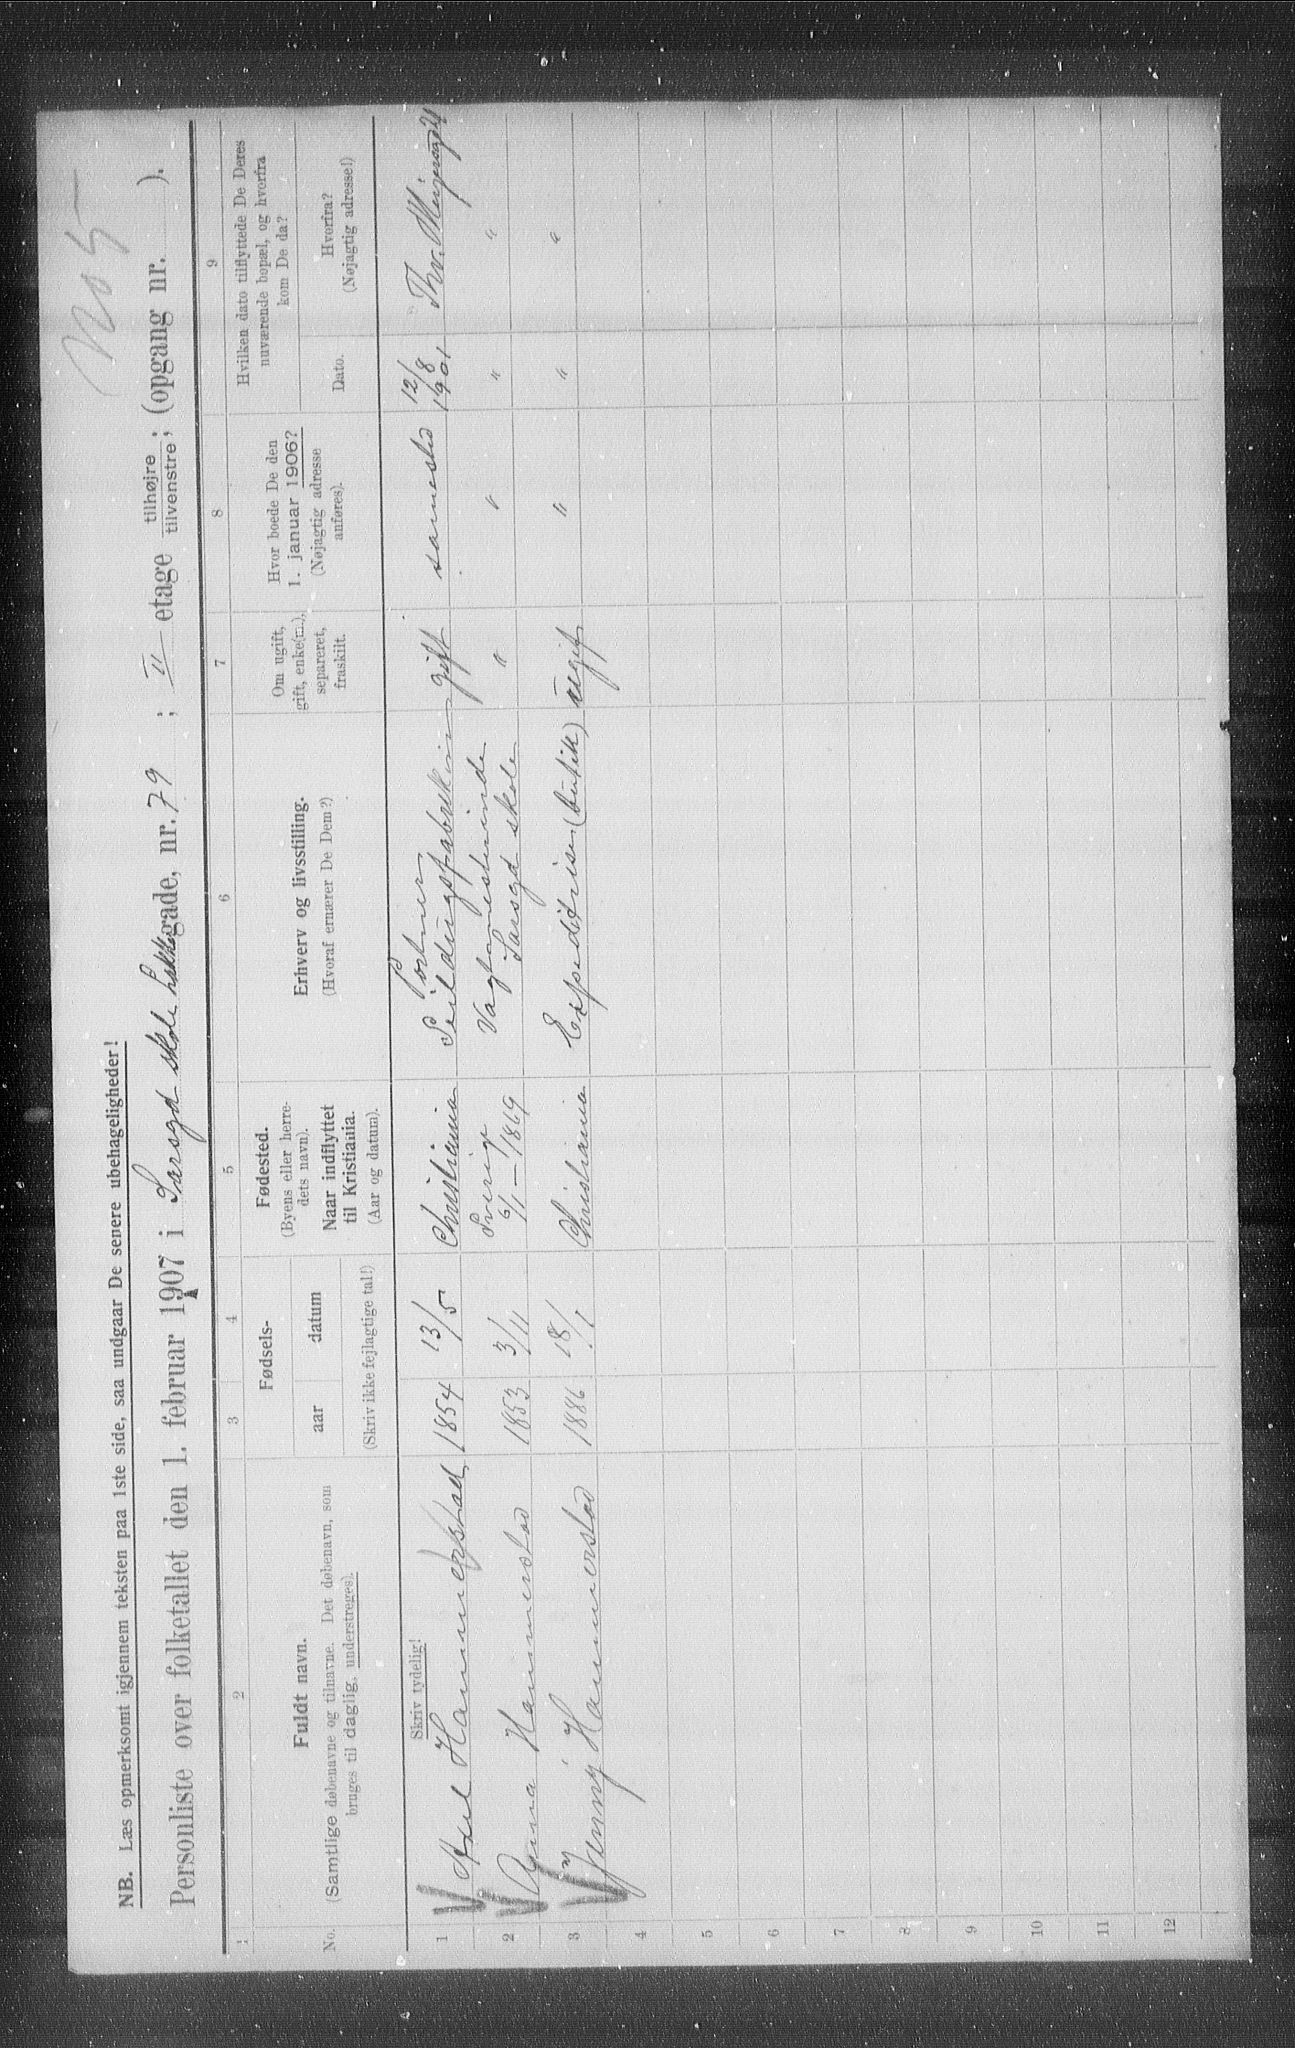 NB. Læs opmerksomt igjennem teksten paa 1ste side, saa undgaar De senere ubehageligheder!
Personliste over folketallet den 1. februar 1907 i Sarsgd skole gade, nr. 79 ; II etage tilhøjre tilvenstre ; (opgang nr. ).
1 2 3 4 5 6 7 8 9
No.
Fuldt navn.
(Samtlige døbenavne og tilnavne. Det døbenavn, som
bruges til daglig, understreges).
Skriv tydelig!
Fødsels-
aar datum
(Skriv ikke fejlagtige tal!)
Fødested.
(Byens eller herre-
dets navn).
Naar indflyttet
til Kristiania.
(Aar og datum).
Erhverv og livsstilling.
(Hvoraf ernærer De Dem?)
Om ugift,
gift, enke(m.),
separeret,
fraskilt.
Hvor boede De den
1. januar 1906?
(Nøjagtig adresse
anføres).
Hvilken dato tilflyttede De Deres
nuværende bopæl, og hvorfra
kom De da?
Dato.
Hvorfra?
(Nøjagtig adresse!)
1 Axel Hammerstad 1854 13/5 Christiania Portner Seildugsfabrikken gift samested 12/8 1901 Thv. Meyersgd
2 Anna Hammerstad 1853 3/11 Sverige 6/1 – 1869 Vagtmesterinde Sarsgd skole " " " "
3 Jenny Hammerstad 1886 18/1 Christiania Expeditrise (butik) ugift " " "
4
5
6
7
8
9
10
11
12